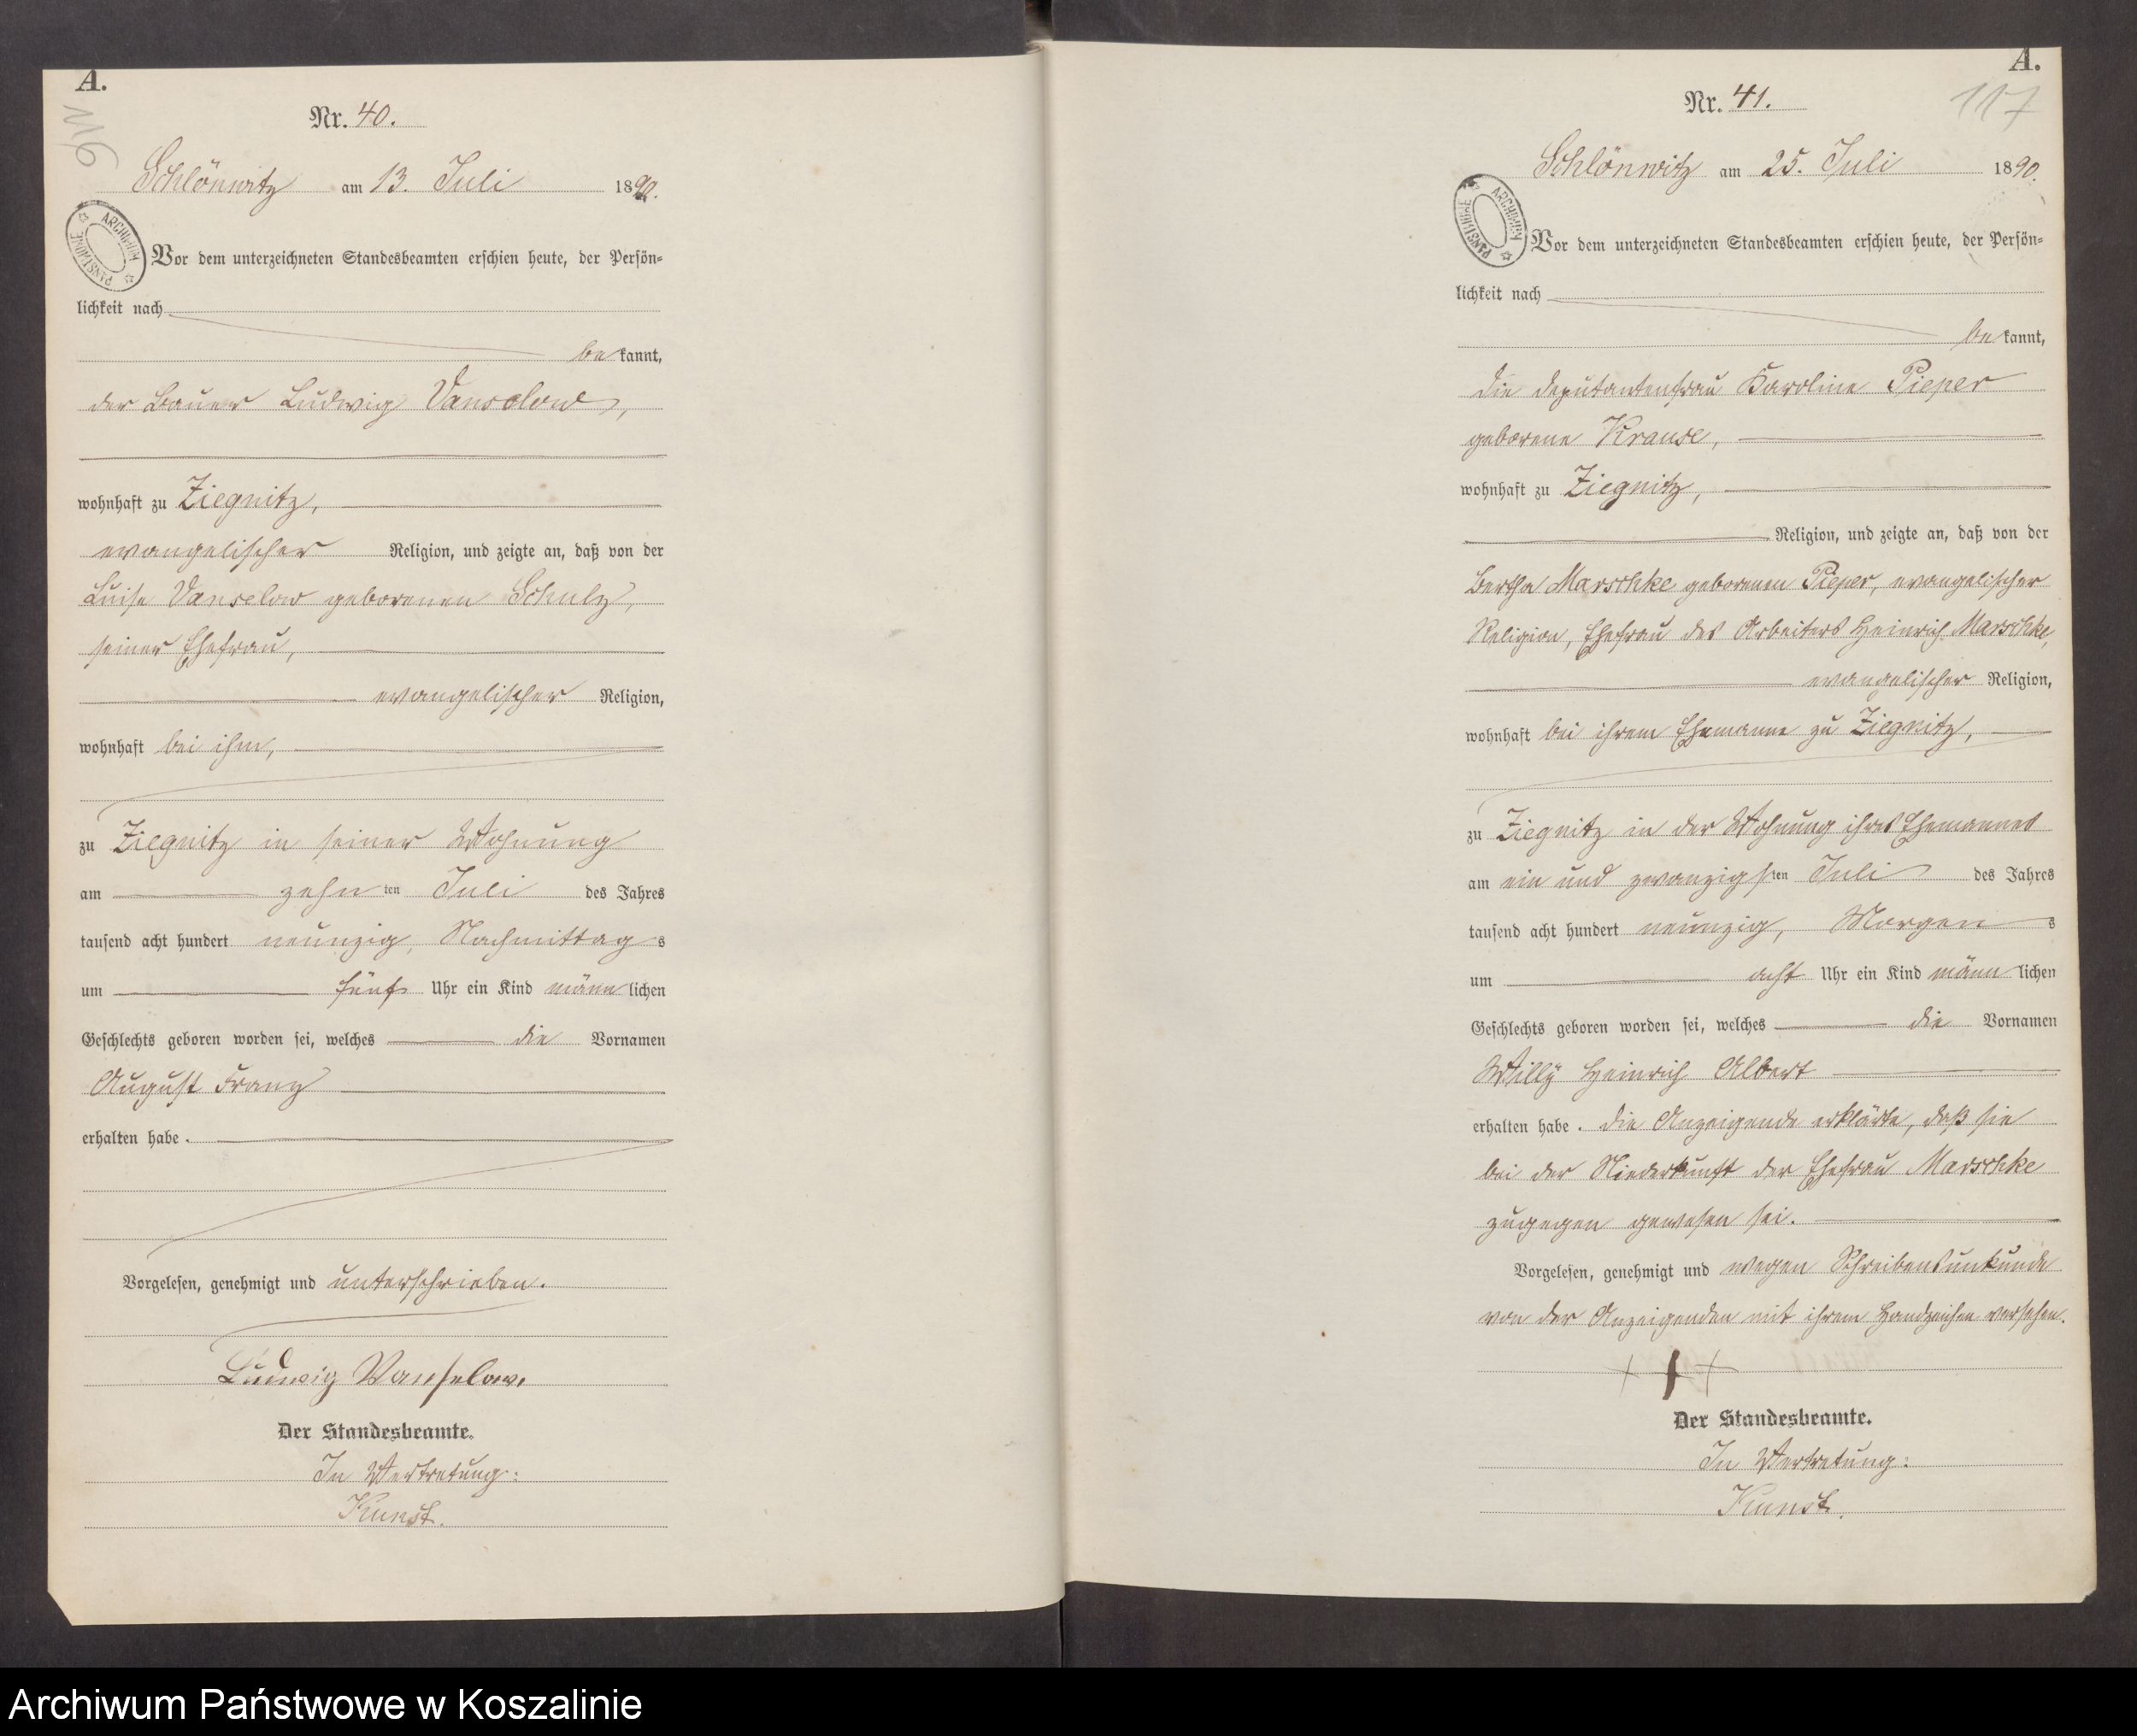 A.
116
Nr. 40.
Schlönwitz am 13. Juli 1890.
ARCHIWUM PAŃSTWOWE
Vor dem unterzeichneten Standesbeamten erschien heute, der Persön-
lichkeit nach
bekannt,
der Bauer Ludwig Vanselow,
wohnhaft zu Ziegnitz,
evangelischer Religion, und zeigte an, daß von der
Luise Vanselow geborenen Schulz,
seiner Ehefrau,
evangelischer Religion,
wohnhaft bei ihm,
zu Ziegnitz in seiner Wohnung
am zehnten Juli des Jahres
tausend acht hundert neunzig, Nachmittags
um fünf Uhr ein Kind männlichen
Geschlechts geboren worden sei, welches die Vornamen
August Franz
erhalten habe.
Vorgelesen, genehmigt und unterschrieben.
Ludwig Vanselow.
Der Standesbeamte.
In Vertretung:
Kunst.
A.
117
Nr. 41.
Schlönwitz am 25. Juli 1890.
ARCHIWUM PAŃSTWOWE
Vor dem unterzeichneten Standesbeamten erschien heute, der Persön-
lichkeit nach
bekannt,
die Deputantenfrau Karoline Pieper
geborene Krause,
wohnhaft zu Ziegnitz,
Religion, und zeigte an, daß von der
Bertha Marschke geborenen Pieper, evangelischer
Religion, Ehefrau des Arbeiters Heinrich Marschke,
evangelischer Religion,
wohnhaft bei ihrem Ehemanne zu Ziegnitz,
zu Ziegnitz in der Wohnung ihres Ehemannes
am ein und zwanzigsten Juli des Jahres
tausend acht hundert neunzig, Morgens
um acht Uhr ein Kind männlichen
Geschlechts geboren worden sei, welches die Vornamen
Willy Heinrich Albert
erhalten habe. Die Anzeigende erklärte, daß sie
bei der Niederkunft der Ehefrau Marschke
zugegen gewesen sei.
Vorgelesen, genehmigt und wegen Schreibensunkunde
von der Anzeigenden mit ihrem Handzeichen versehen.
+++
Der Standesbeamte.
In Vertretung:
Kunst.
Archiwum Państwowe w Koszalinie